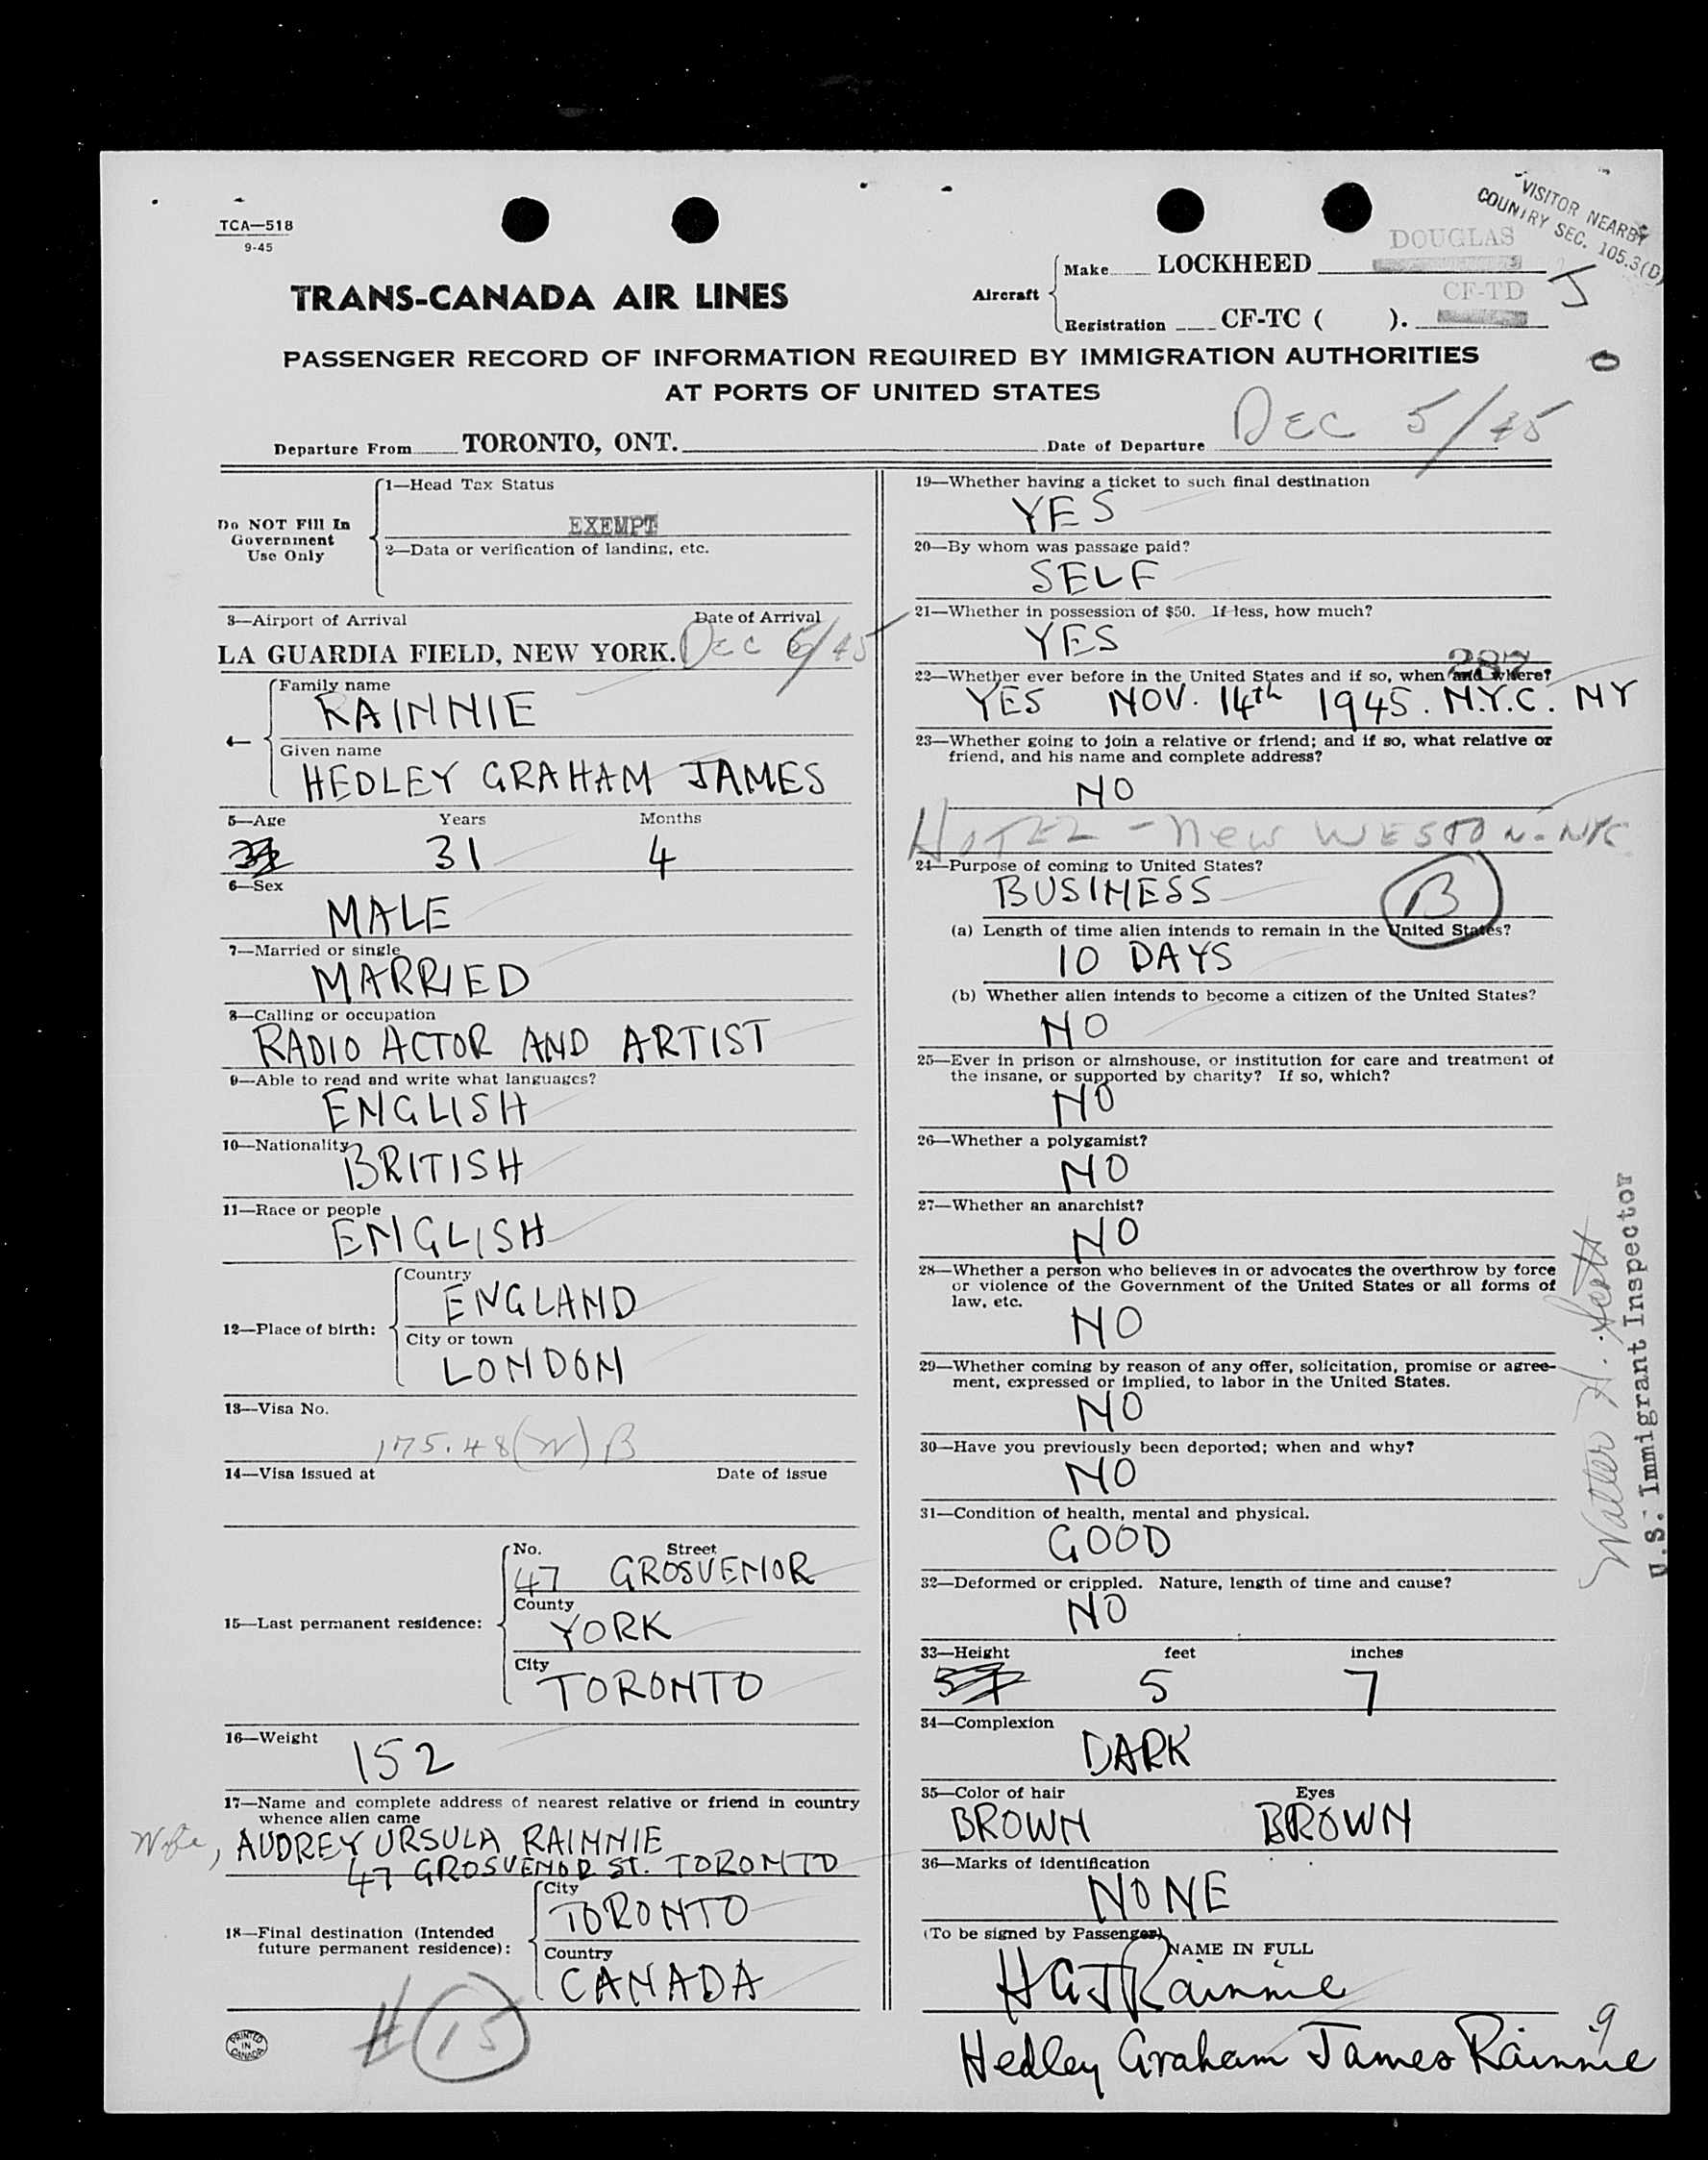 TCA—518
9-45
VISITOR NEARBY
COUNTRY SEC. 105.3(D)
TRANS-CANADA AIR LINES
Aircraft
DOUGLAS
Make LOCKHEED
CF-TD
Registration CF-TC ( ).
J
0
PASSENGER RECORD OF INFORMATION REQUIRED BY IMMIGRATION AUTHORITIES
AT PORTS OF UNITED STATES
Departure From TORONTO, ONT. Date of Departure DEC 5/45
Do NOT Fill In
Government
Use Only
1—Head Tax Status
EXEMPT
2—Data or verification of landing, etc.
3—Airport of Arrival Date of Arrival
LA GUARDIA FIELD, NEW YORK. DEC 6/45
4—
Family name
RAINNIE
Given name
HEDLEY GRAHAM JAMES
5—Age Years Months
31 4
6—Sex
MALE
7—Married or single
MARRIED
8—Calling or occupation
RADIO ACTOR AND ARTIST
9—Able to read and write what languages?
ENGLISH
10—Nationality
BRITISH
11—Race or people
ENGLISH
12—Place of birth:
Country
ENGLAND
City or town
LONDON
13—Visa No.
175.48(W) B
14—Visa issued at Date of issue
15—Last permanent residence:
No. Street
47 GROSVENOR
County
YORK
City
TORONTO
16—Weight
152
17—Name and complete address of nearest relative or friend in country
whence alien came
Wife, AUDREY URSULA RAINNIE
47 GROSVENOR ST. TORONTO
18—Final destination (Intended
future permanent residence):
City
TORONTO
Country
CANADA
# 15
PRINTED
IN
CANADA
19—Whether having a ticket to such final destination
YES
20—By whom was passage paid?
SELF
21—Whether in possession of $50. If less, how much?
YES
287
22—Whether ever before in the United States and if so, when and where?
YES NOV. 14th 1945. N.Y.C. NY
23—Whether going to join a relative or friend; and if so, what relative or
friend, and his name and complete address?
NO
HOTEL - New WESTON - NYC
24—Purpose of coming to United States?
BUSINESS B
(a) Length of time alien intends to remain in the United States?
10 DAYS
(b) Whether alien intends to become a citizen of the United States?
NO
25—Ever in prison or almshouse, or institution for care and treatment of
the insane, or supported by charity? If so, which?
NO
26—Whether a polygamist?
NO
27—Whether an anarchist?
NO
28—Whether a person who believes in or advocates the overthrow by force
or violence of the Government of the United States or all forms of
law, etc.
NO
29—Whether coming by reason of any offer, solicitation, promise or agree-
ment, expressed or implied, to labor in the United States.
NO
30—Have you previously been deported; when and why?
NO
31—Condition of health, mental and physical.
GOOD
32—Deformed or crippled. Nature, length of time and cause?
NO
33—Height feet inches
5 7
34—Complexion
DARK
35—Color of hair Eyes
BROWN BROWN
36—Marks of identification
NONE
(To be signed by Passenger) NAME IN FULL
HGJRainnie
9
Hedley Graham James Rainnie
Walter H. Scott
U.S. Immigrant Inspector